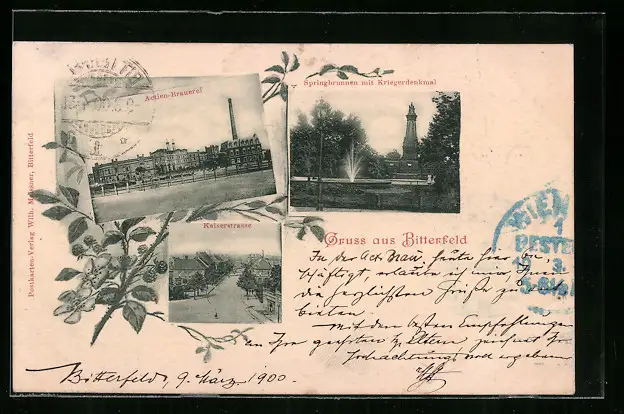 Actien-Brauerei
Springbrunnen mit Kriegerdenkmal
Kaiserstrasse
Gruss aus Bitterfeld
Postkarten-Verlag Wilh. Meissner, Bitterfeld
WIEN
1
BESTE
In der Act. Brau. heute hier be-
schäftigt, erlaube ich mir Ihnen
die herzlichsten Grüße zu ent-
bieten.
Mit den besten Empfehlungen
an Ihre geehrten Eltern zeichnet Ihr
hochachtungsvoll ergebener
Bitterfeld, 9. März 1900.